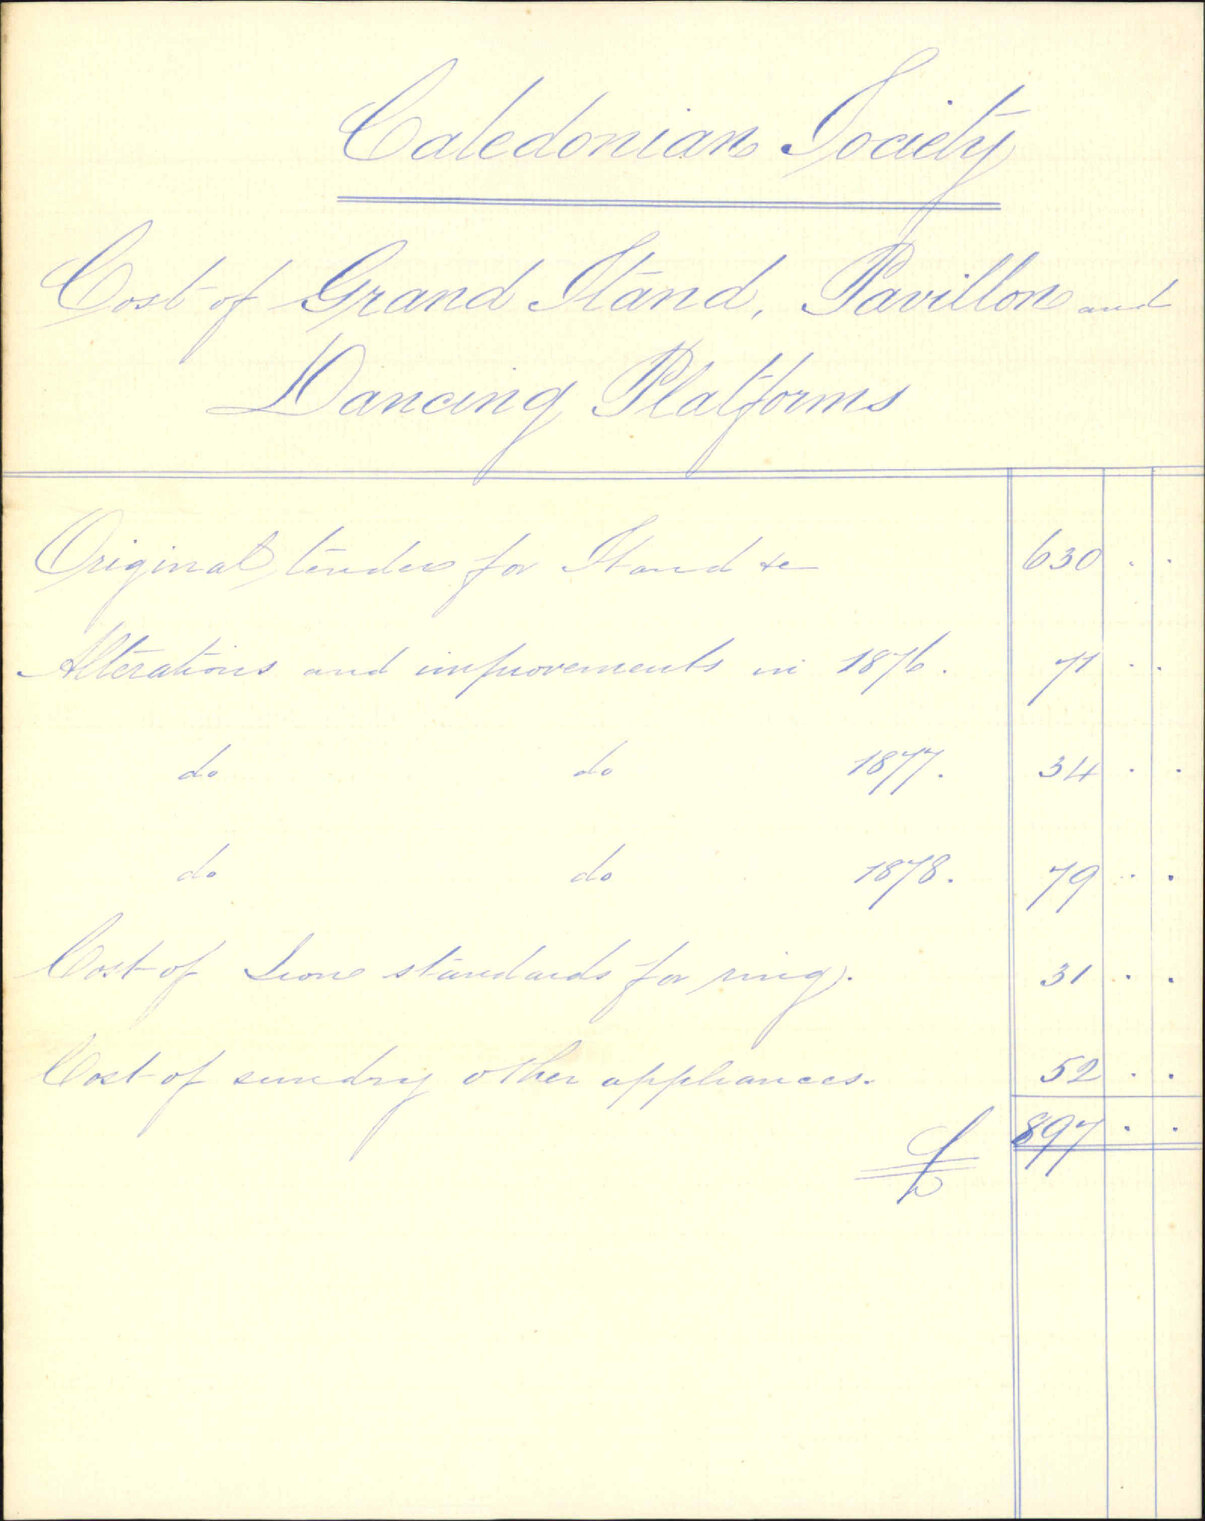 Caledonian Society
Cost of Grand Stand, Pavillon and
Dancing Platforms
Original tender for Stand &c 630 . .
Alterations and improvements in 1876. 71 . .
do do 1877. 34 . .
do do 1878. 79 . .
Cost of Iron standards for ring. 31 . .
Cost of sundry other appliances. 52 . .
£ 897 . .